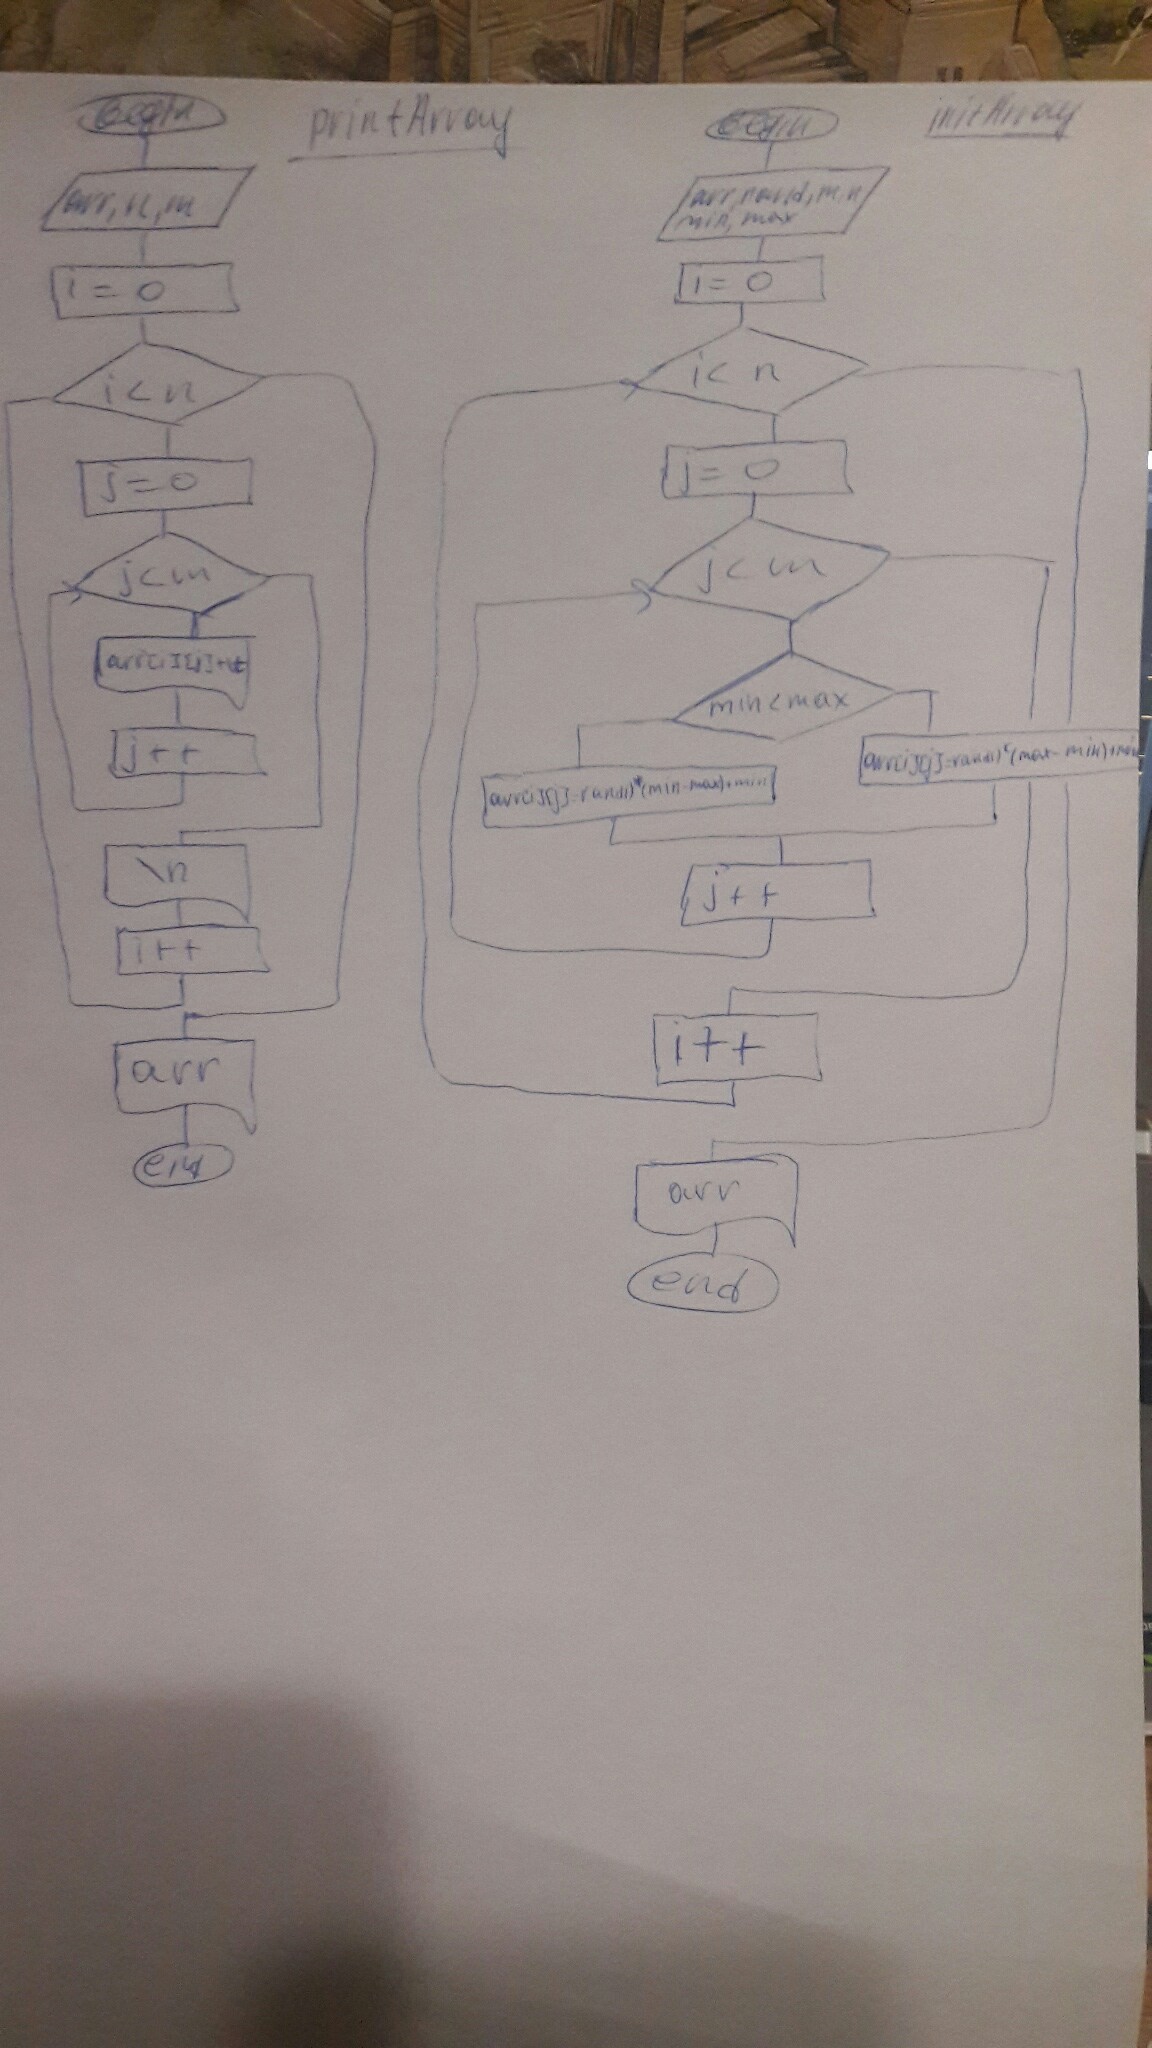 printArray
begin
arr, n, m
i = 0
i < n
j = 0
j < m
arr[i][j]+\t
j++
\n
i++
arr
end
initArray
begin
min, max
i = 0
i < n
j = 0
j < m
min < max
arr[i][j]=rand()*(min-max)+min
arr[i][j]=rand()*(max-min)+min
j++
i++
arr
end